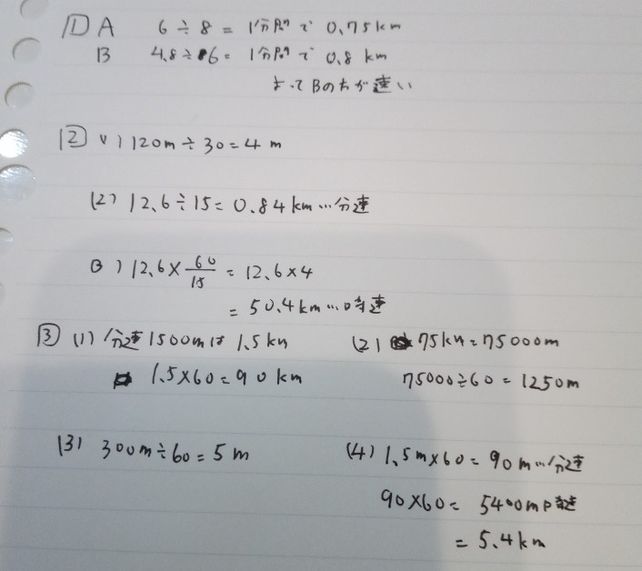 1 A 6÷8=1分間で0.75km
B 4.8÷6=1分間で0.8km
よってBの方が速い
2 (1) 120m÷30=4m
(2) 12.6÷15=0.84km…分速
(3) 12.6×60/15=12.6×4
=50.4km…時速
3 (1) 分速1500mは1.5km (2) 75km=75000m
1.5×60=90km 75000÷60=1250m
(3) 300m÷60=5m (4) 1.5m×60=90m…分速
90×60=5400m時速
=5.4km